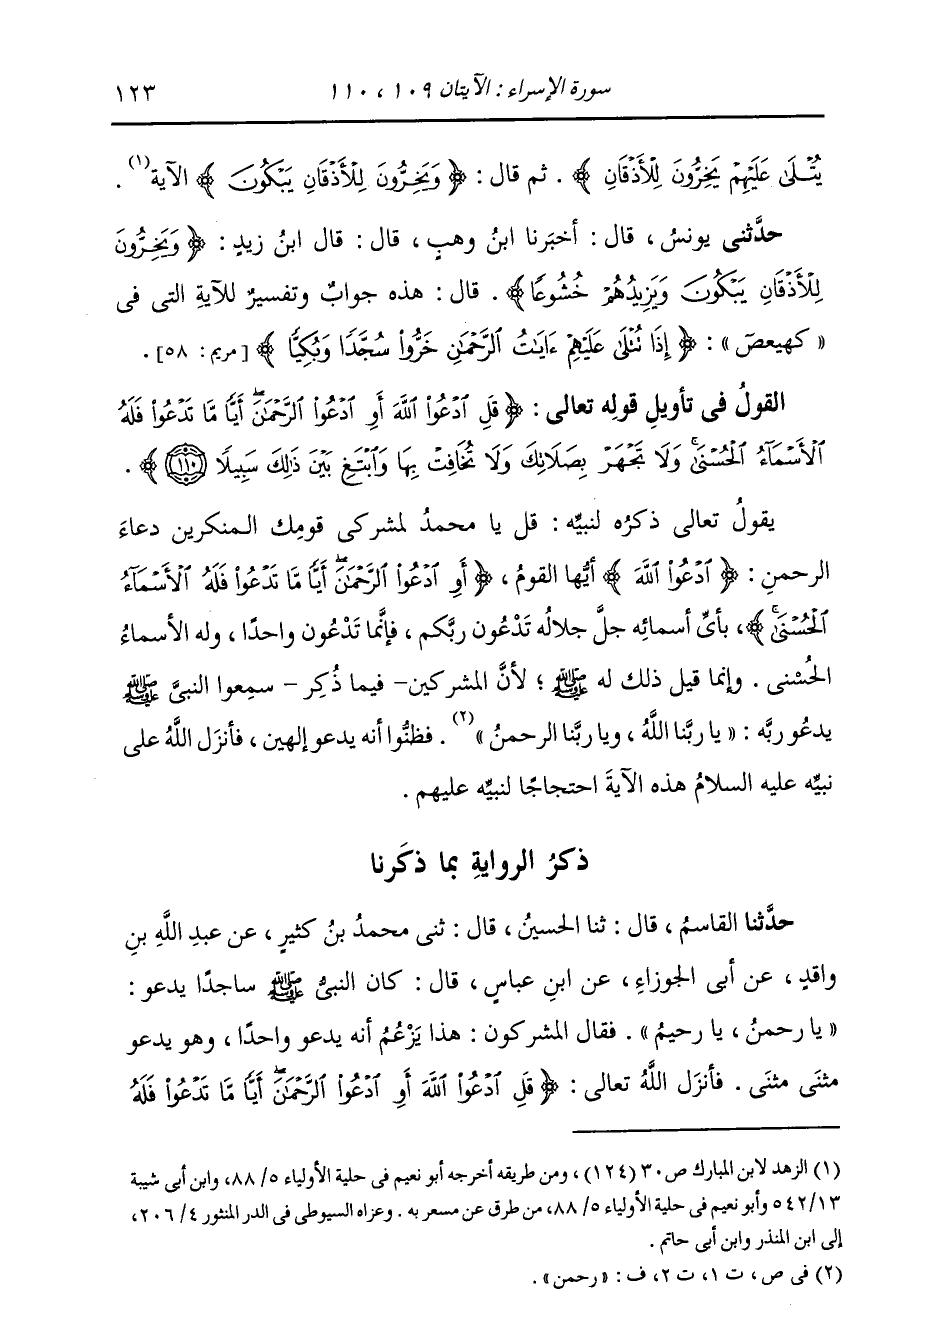 سورة الإسراء : الآيتان ١٠٩ ، ١١٠ ١٢٣
يُتْلَىٰ عَلَيْهِمْ يَخِرُّونَ لِلْأَذْقَانِ ﴾ . ثم قال : ﴿ وَيَخِرُّونَ لِلْأَذْقَانِ يَبْكُونَ ﴾ الآية(١) .
حدَّثنى يونسُ ، قال : أخبَرنا ابنُ وهبٍ ، قال : قال ابنُ زيدٍ : ﴿ وَيَخِرُّونَ
لِلْأَذْقَانِ يَبْكُونَ وَيَزِيدُهُمْ خُشُوعًا ﴾ . قال : هذه جوابٌ وتفسيرٌ للآيةِ التى فى
« كهيعص » : ﴿ إِذَا نُتْلَىٰ عَلَيْهِمْ ءَايَٰتُ الرَّحْمَٰنِ خَرُّوا۟ سُجَّدًا وَبُكِيًّا ﴾ [ مريم : ٥٨ ] .
القولُ فى تأويلِ قولِه تعالى : ﴿ قُلِ ٱدْعُوا۟ ٱللَّهَ أَوِ ٱدْعُوا۟ ٱلرَّحْمَٰنَ ۖ أَيًّا مَّا تَدْعُوا۟ فَلَهُ
ٱلْأَسْمَآءُ ٱلْحُسْنَىٰ ۚ وَلَا تَجْهَرْ بِصَلَاتِكَ وَلَا تُخَافِتْ بِهَا وَٱبْتَغِ بَيْنَ ذَٰلِكَ سَبِيلًا (١١٠) ﴾ .
يقولُ تعالى ذكرُه لنبيِّه : قل يا محمدُ لمشركى قومِك المنكرين دعاءَ
الرحمنِ : ﴿ ٱدْعُوا۟ ٱللَّهَ ﴾ أيُّها القومُ ، ﴿ أَوِ ٱدْعُوا۟ ٱلرَّحْمَٰنَ ۖ أَيًّا مَّا تَدْعُوا۟ فَلَهُ ٱلْأَسْمَآءُ
ٱلْحُسْنَىٰ ۚ ﴾ ، بأىِّ أسمائِه جلَّ جلالُه تَدْعُون ربَّكم ، فإنَّما تَدْعُون واحدًا ، وله الأسماءُ
الحُسْنى . وإنما قيل ذلك له ﷺ ؛ لأنَّ المشركين - فيما ذُكِر - سمِعوا النبىَّ ﷺ
يدعُو ربَّه : « يا ربَّنا اللَّهُ ، ويا ربَّنا الرحمنُ »(٢) . فظنُّوا أنه يدعو إلهين ، فأنزَل اللَّهُ على
نبيِّه عليه السلامُ هذه الآيةَ احتجاجًا لنبيِّه عليهم .
ذكرُ الروايةِ بما ذكَرنا
حدَّثنا القاسمُ ، قال : ثنا الحسينُ ، قال : ثنى محمدُ بنُ كثيرٍ ، عن عبدِ اللَّهِ بنِ
واقدٍ ، عن أبى الجوزاءِ ، عن ابنِ عباسٍ ، قال : كان النبىُّ ﷺ ساجدًا يدعو :
« يا رحمنُ ، يا رحيمُ » . فقال المشركون : هذا يَزْعُمُ أنه يدعو واحدًا ، وهو يدعو
مثنَى مثنَى . فأنزَل اللَّهُ تعالى : ﴿ قُلِ ٱدْعُوا۟ ٱللَّهَ أَوِ ٱدْعُوا۟ ٱلرَّحْمَٰنَ ۖ أَيًّا مَّا تَدْعُوا۟ فَلَهُ
(١) الزهد لابن المبارك ص ٣٠ (١٢٤) ، ومن طريقه أخرجه أبو نعيم فى حلية الأولياء ٥/ ٨٨، وابن أبى شيبة
١٣/ ٥٤٢ وأبو نعيم فى حلية الأولياء ٥/ ٨٨، من طرق عن مسعر به . وعزاه السيوطى فى الدر المنثور ٤/ ٢٠٦،
إلى ابن المنذر وابن أبى حاتم .
(٢) فى ص ، ت ١، ت ٢، ف : « رحمن » .